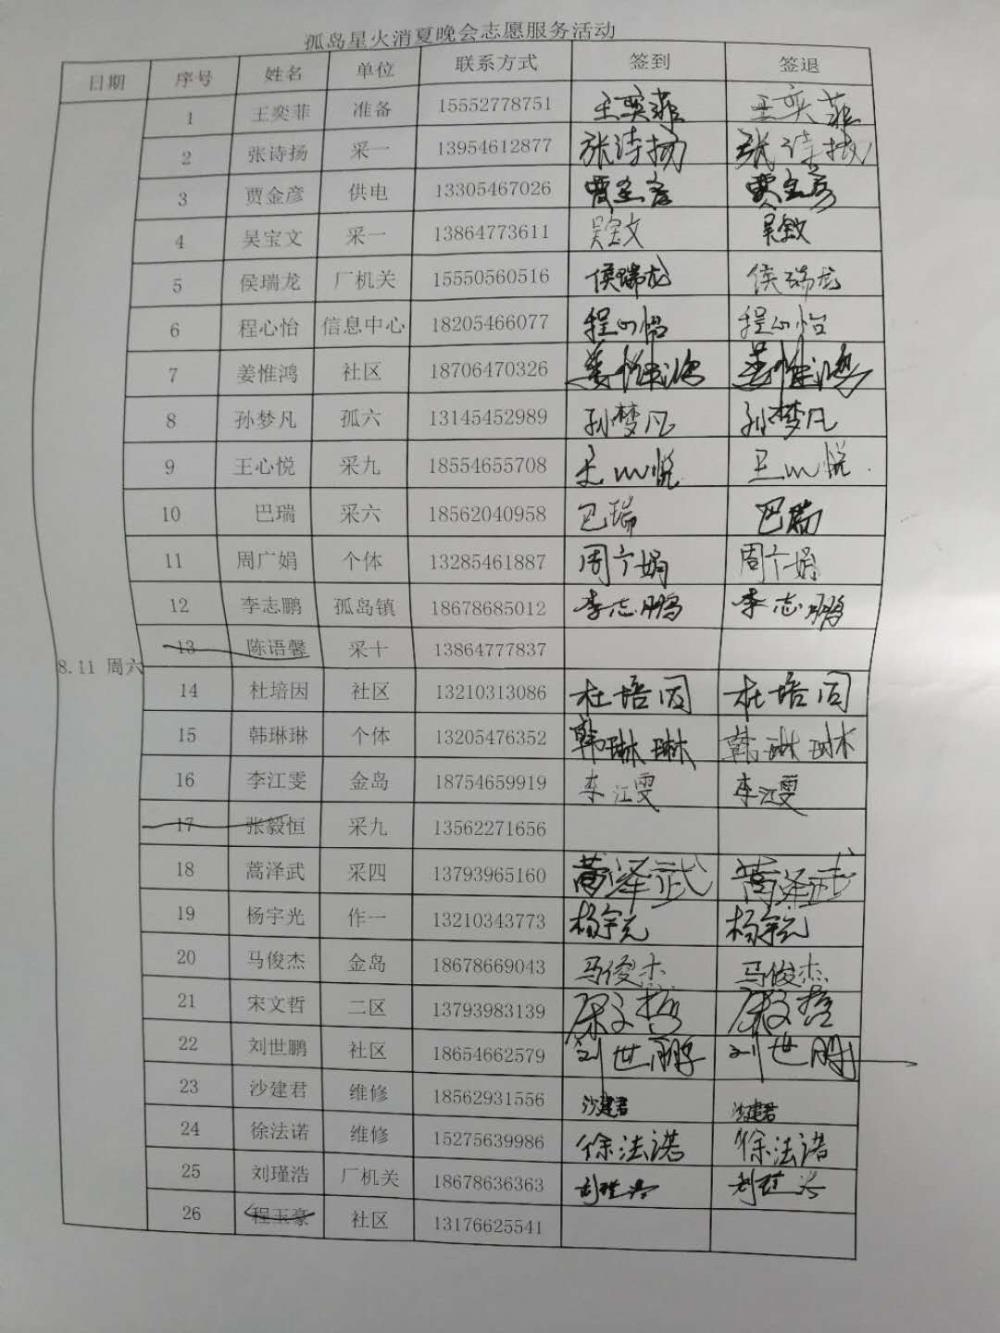 孤岛星火消夏晚会志愿服务活动
日期 序号 姓名 单位 联系方式 签到 签退
8.11 周六
1 王奕菲 准备 15552778751 王奕菲 王奕菲
2 张诗扬 采一 13954612877 张诗扬 张诗扬
3 贾金彦 供电 13305467026 贾金彦 贾金彦
4 吴宝文 采一 13864773611 吴宝文 吴宝文
5 侯瑞龙 厂机关 15550560516 侯瑞龙 侯瑞龙
6 程心怡 信息中心 18205466077 程心怡 程心怡
7 姜惟鸿 社区 18706470326 姜惟鸿 姜惟鸿
8 孙梦凡 孤六 13145452989 孙梦凡 孙梦凡
9 王心悦 采九 18554655708 王心悦 王心悦
10 巴瑞 采六 18562040958 巴瑞 巴瑞
11 周广娟 个体 13285461887 周广娟 周广娟
12 李志鹏 孤岛镇 18678685012 李志鹏 李志鹏
13 陈语馨 采十 13864777837
14 杜培因 社区 13210313086 杜培因 杜培因
15 韩琳琳 个体 13205476352 韩琳琳 韩琳琳
16 李江雯 金岛 18754659919 李江雯 李江雯
17 张毅恒 采九 13562271656
18 蒿泽武 采四 13793965160 蒿泽武 蒿泽武
19 杨宇光 作一 13210343773 杨宇光 杨宇光
20 马俊杰 金岛 18678669043 马俊杰 马俊杰
21 宋文哲 二区 13793983139 宋文哲 宋文哲
22 刘世鹏 社区 18654662579 刘世鹏 刘世鹏
23 沙建君 维修 18562931556 沙建君 沙建君
24 徐法诺 维修 15275639986 徐法诺 徐法诺
25 刘瑾浩 厂机关 18678636363 刘瑾浩 刘瑾浩
26 程玉豪 社区 13176625541